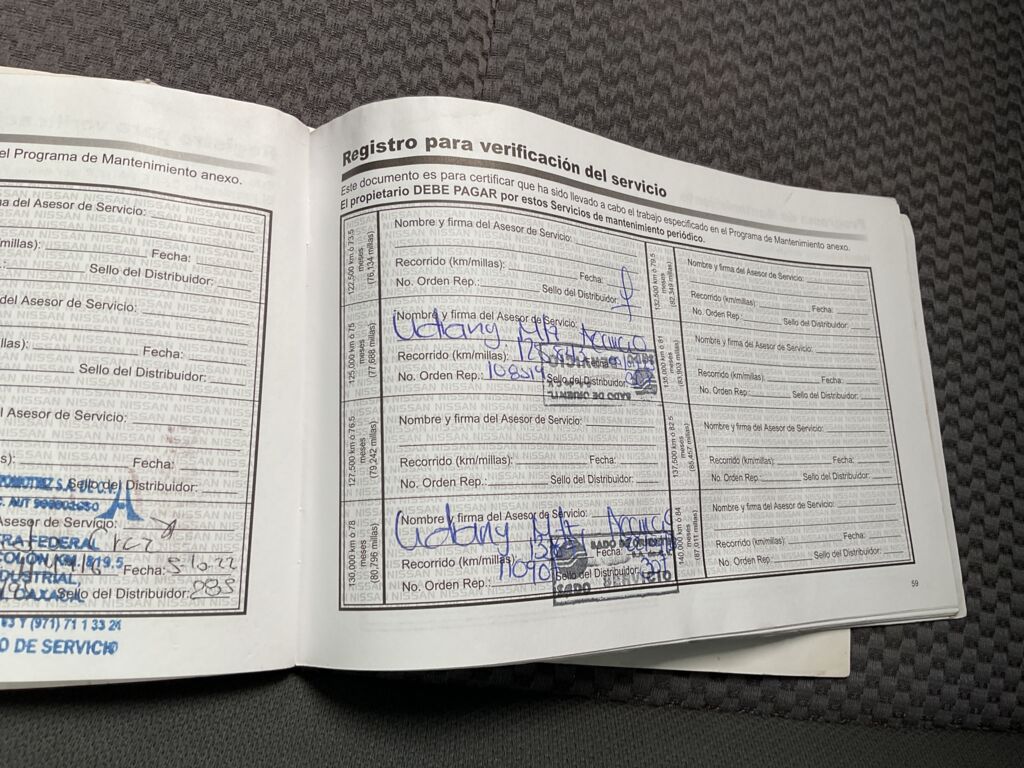 el Programa de Mantenimiento anexo.
a del Asesor de Servicio:
millas): Fecha:
Sello del Distribuidor:
del Asesor de Servicio:
illas): Fecha:
Sello del Distribuidor:
l Asesor de Servicio:
s): Fecha:
Sello del Distribuidor:
Asesor de Servicio:
RA FEDERAL
COLÓN KM 819.5
Fecha: 5 10.22
DUSTRIAL,
OAXACA
Sello del Distribuidor:
Y (971) 71 1 33 24
O DE SERVICIO
Registro para verificación del servicio
Este documento es para certificar que ha sido llevado a cabo el trabajo especificado en el Programa de Mantenimiento anexo.
El propietario DEBE PAGAR por estos Servicios de mantenimiento periódico.
122,500 km ó 73.5
meses
(76,134 millas)
Nombre y firma del Asesor de Servicio:
Recorrido (km/millas): Fecha:
No. Orden Rep.: Sello del Distribuidor:
125,000 km ó 75
meses
(77,688 millas)
Nombre y firma del Asesor de Servicio:
Recorrido (km/millas):
No. Orden Rep.: 108519 Sello del Distribuidor:
127,500 km ó 76.5
meses
(79,242 millas)
Nombre y firma del Asesor de Servicio:
Recorrido (km/millas): Fecha:
No. Orden Rep.: Sello del Distribuidor:
130,000 km ó 78
meses
(80,796 millas)
Nombre y firma del Asesor de Servicio:
Recorrido (km/millas): Fecha:
No. Orden Rep.: 110901 Sello del Distribuidor:
SADO
132,500 km ó 79.5
meses
Nombre y firma del Asesor de Servicio:
Recorrido (km/millas): Fecha:
No. Orden Rep.: Sello del Distribuidor:
135,000 km ó 81
meses
Nombre y firma del Asesor de Servicio:
Recorrido (km/millas): Fecha:
No. Orden Rep.: Sello del Distribuidor:
137,500 km ó 82.5
meses
Nombre y firma del Asesor de Servicio:
Recorrido (km/millas): Fecha:
No. Orden Rep.: Sello del Distribuidor:
140,000 km ó 84
meses
(87,011 millas)
Nombre y firma del Asesor de Servicio:
Recorrido (km/millas): Fecha:
No. Orden Rep.: Sello del Distribuidor:
59